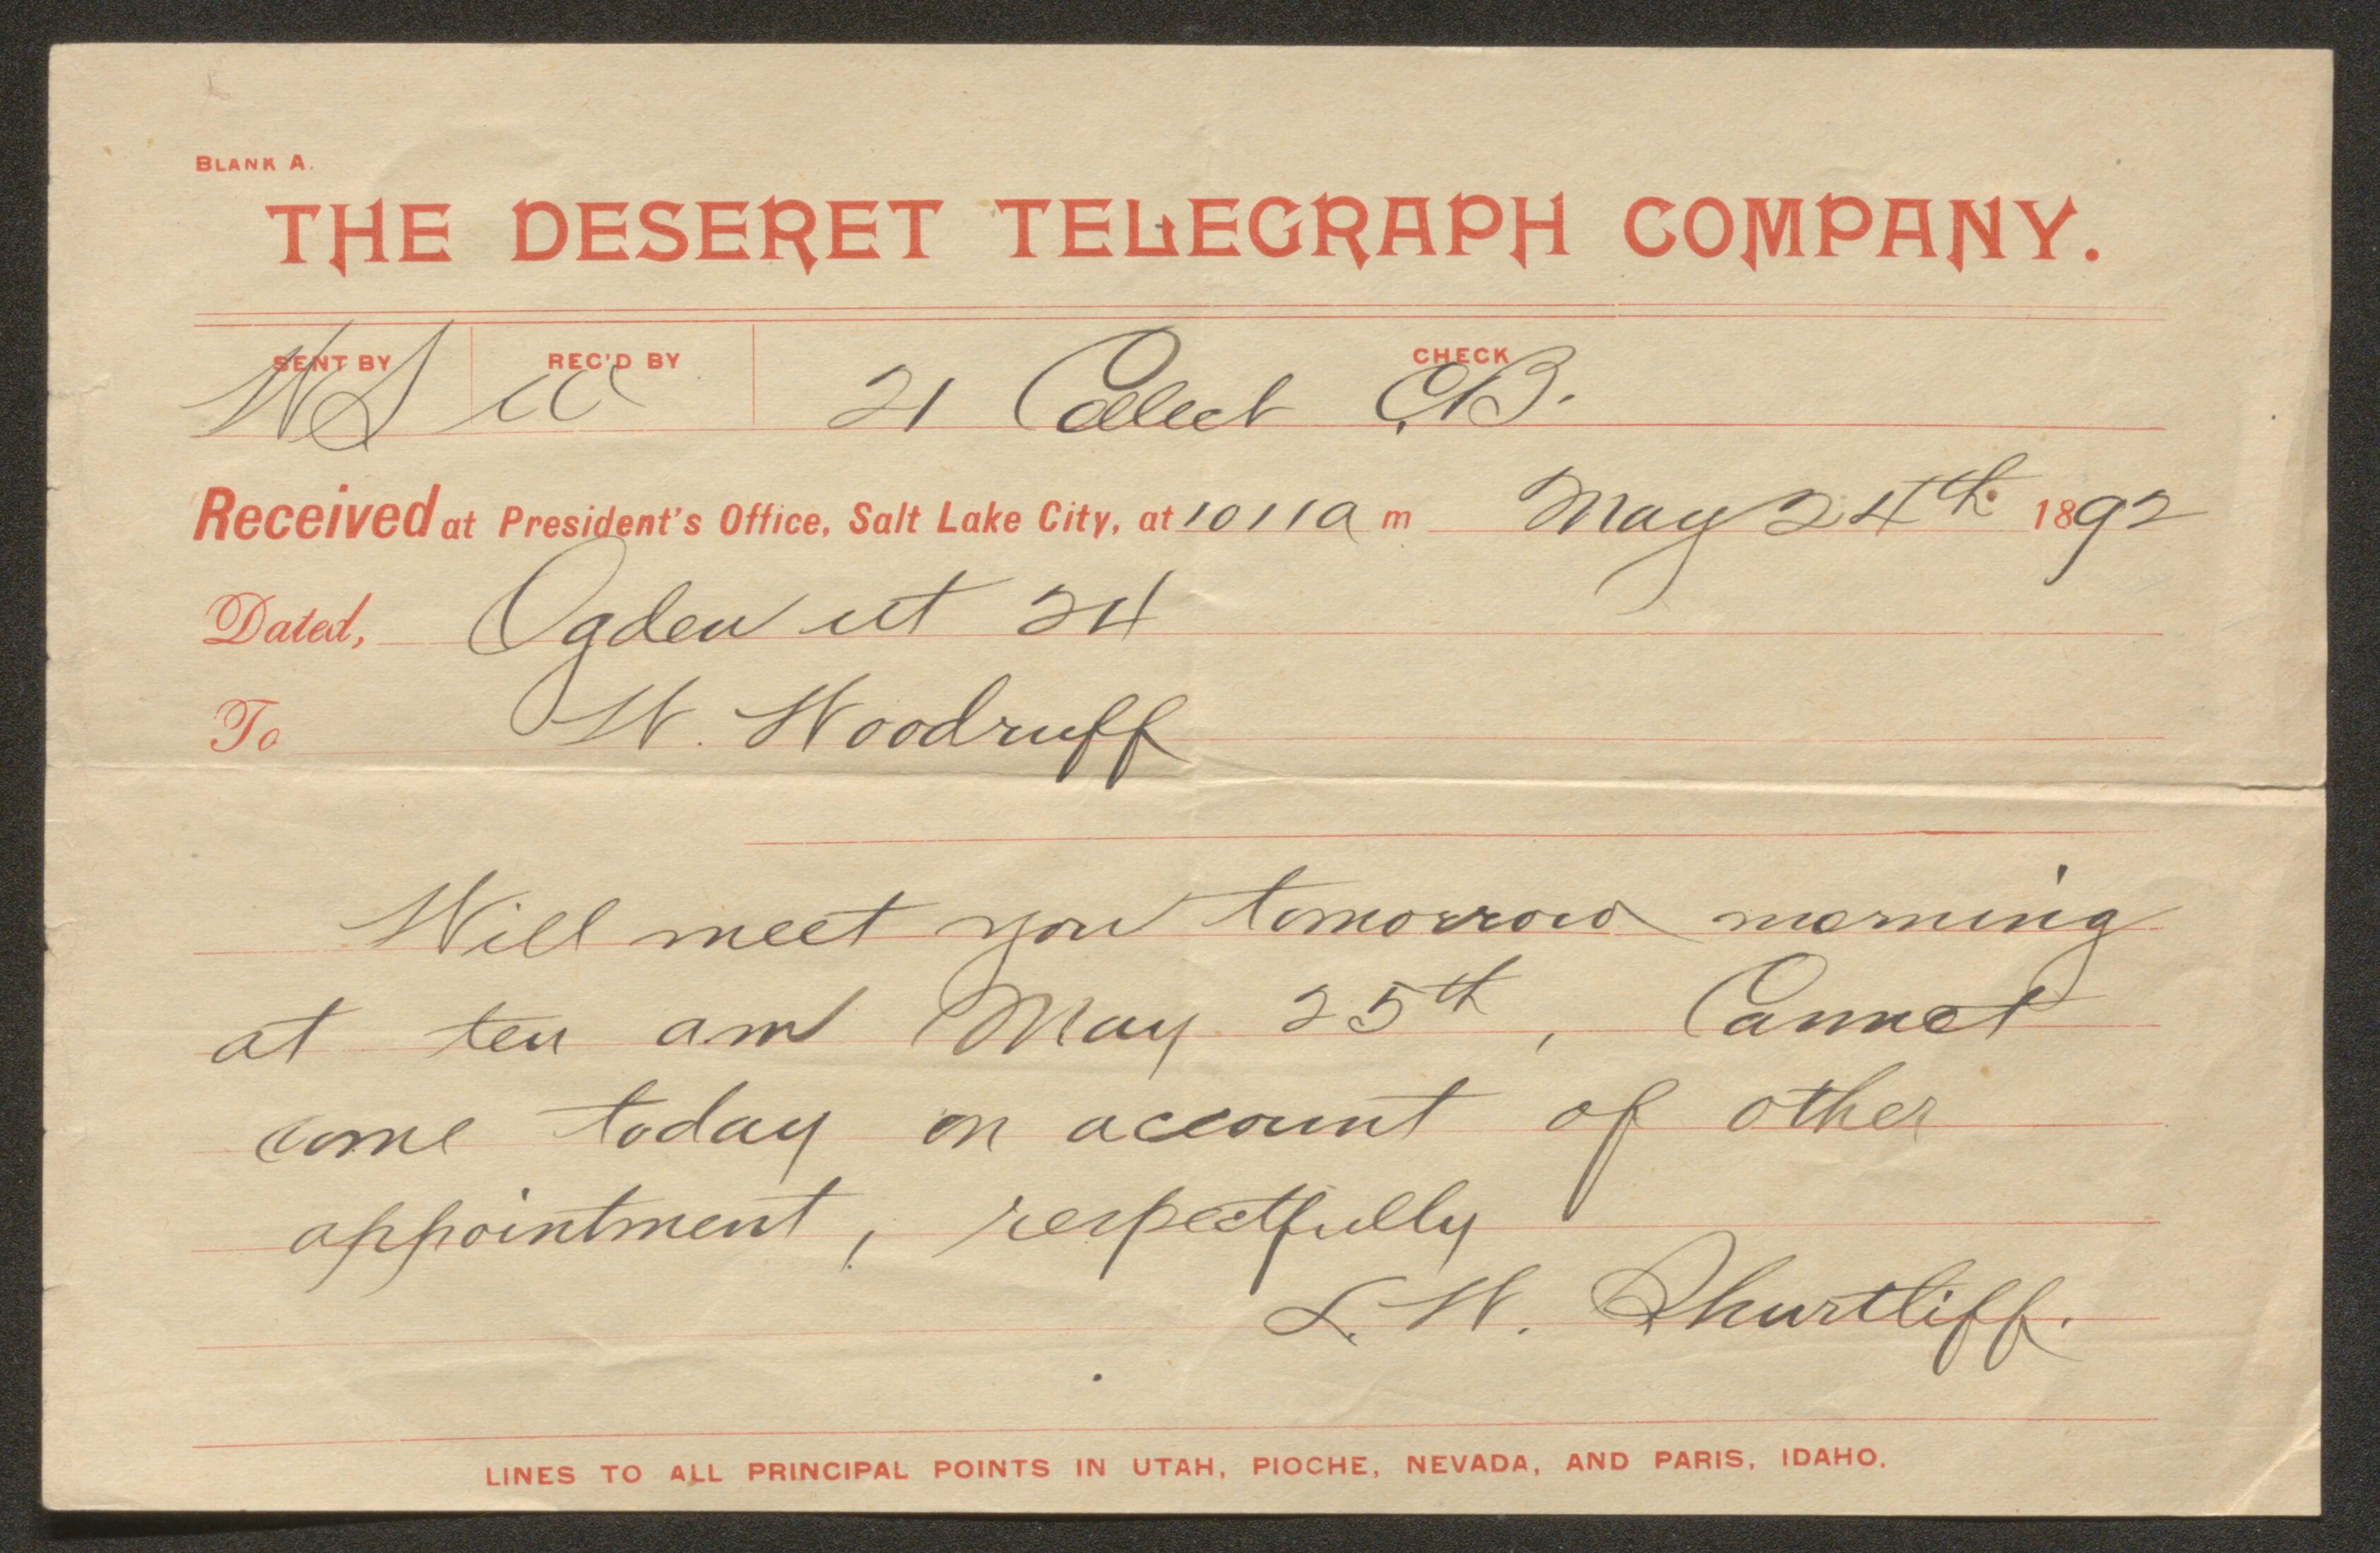 BLANK A.
THE DESERET TELEGRAPH COMPANY.
SENT BY REC'D BY CHECK
WS 21 Collect
Received at President's Office, Salt Lake City, at 1011 a m May 24th 1892
Dated, Ogden ut 24
To W. Woodruff
Will meet you tomorrow morning
at ten am May 25th, Cannot
come today on account of other
appointment, respectfully
L. W. Shurtliff.
LINES TO ALL PRINCIPAL POINTS IN UTAH, PIOCHE, NEVADA, AND PARIS, IDAHO.